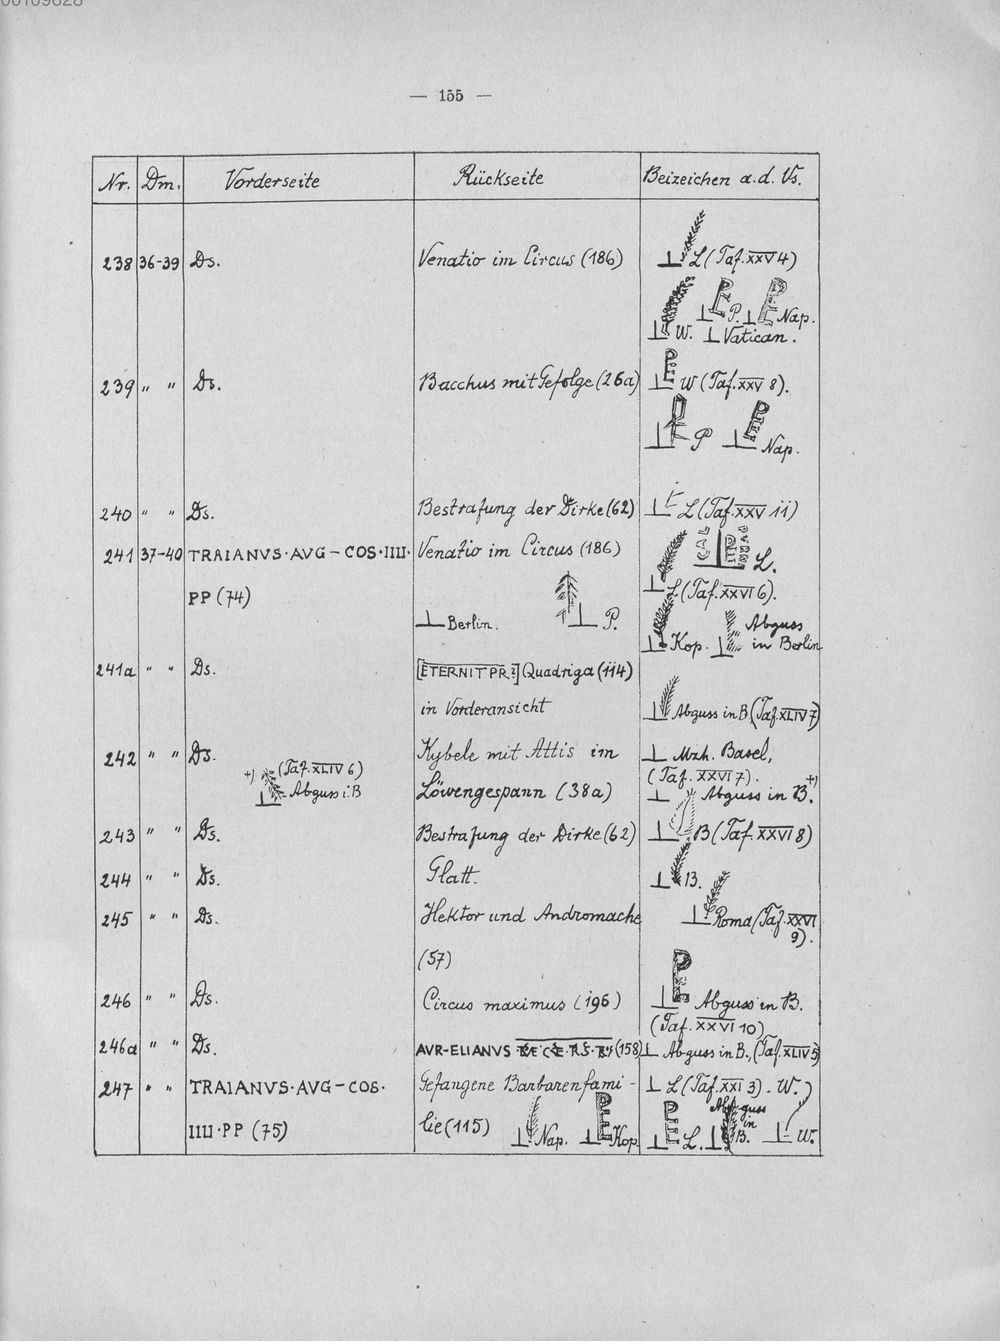 — 155 —
Nr. Dm. Vorderseite Rückseite Beizeichen a.d. Vs.
238 36-39 Ds. Venatio im Circus (186) L (Taf. XXV 4)
W. P. Nap.
Vatican.
239 " " Ds. Bacchus mit Gefolge (26a) W (Taf. XXV 8).
P Nap.
240 " " Ds. Bestrafung der Dirke (62) L (Taf. XXV 11)
241 37-40 TRAIANVS·AVG-COS·IIII· Venatio im Circus (186) L.
PP (74) L (Taf. XXVI 6).
Berlin. P. Kop. Abguss
in Berlin
241a " " Ds. [ETERNIT PR?] Quadriga (114)
in Vorderansicht Abguss in B (Taf. XLIV 7)
242 " " Ds. Kybele mit Attis im Mzh. Basel,
+) (Taf. XLIV 6) (Taf. XXVI 7).
Abguss i. B Löwengespann (38a) Abguss in B. +)
243 " " Ds. Bestrafung der Dirke (62) B (Taf. XXVI 8)
244 " " Ds. Glatt. B.
245 " " Ds. Hektor und Andromache Roma (Taf. XXVI
9).
(57)
246 " " Ds. Circus maximus (196) Abguss in B.
(Taf. XXVI 10)
246a " " Ds. AVR-ELIANVS (158) Abguss in B., (Taf. XLIV 5)
247 " " TRAIANVS·AVG-COS· Gefangene Barbarenfami- L (Taf. XXI 3). W.
IIII·PP (75) lie (115) Nap. Kop. L. Abguss
in
B. W.